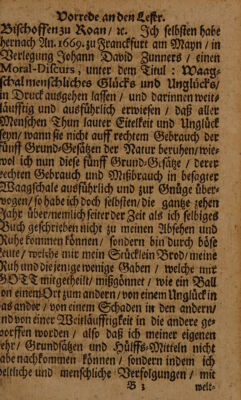 Vorrede an den Leser.
Bischoffen zu Roan / ꝛc. Ich selbsten habe
hernach An. 1669. zu Franckfurt am Mayn / in
Verlegung Johann David Zunners / einen
Moral-Discurs, unter dem Titul: Waag-
schal menschliches Glücks und Unglücks /
in Druck ausgehen lassen / und darinnen weit-
läufftig und ausführlich erwiesen / daß aller
Menschen Thun lauter Eitelkeit und Unglück
seyn / wann sie nicht auff rechtem Gebrauch der
fünff Grund-Gesätzen der Natur beruhen / wie-
wol ich nun diese fünff Grund-Gesätze / derer
rechten Gebrauch und Mißbrauch in besagter
Waagschale ausführlich und zur Gnüge über-
wogen / so habe ich doch selbsten / die gantze zehen
Jahr über / nemlich seiter der Zeit als ich selbiges
Buch geschrieben nicht zu meinen Absehen und
Ruhe kommen können / sondern bin durch böse
Leute / welche mir mein Stücklein Brod / meine
Ruh und die jenige wenige Gaben / welche mir
GOTT mitgetheilt / mißgönnet / wie ein Ball
von einem Ort zum andern / von einem Unglück in
das ander / von einem Schaden in den andern /
und von einer Weitläufftigkeit in die andere ge-
worffen worden / also daß ich meiner eigenen
Lehr / Grundsätzen und Hülffs-Mitteln nicht
habe nachkommen können / sondern indem ich
zeitliche und menschliche Verfolgungen / mit
B 3 welt-